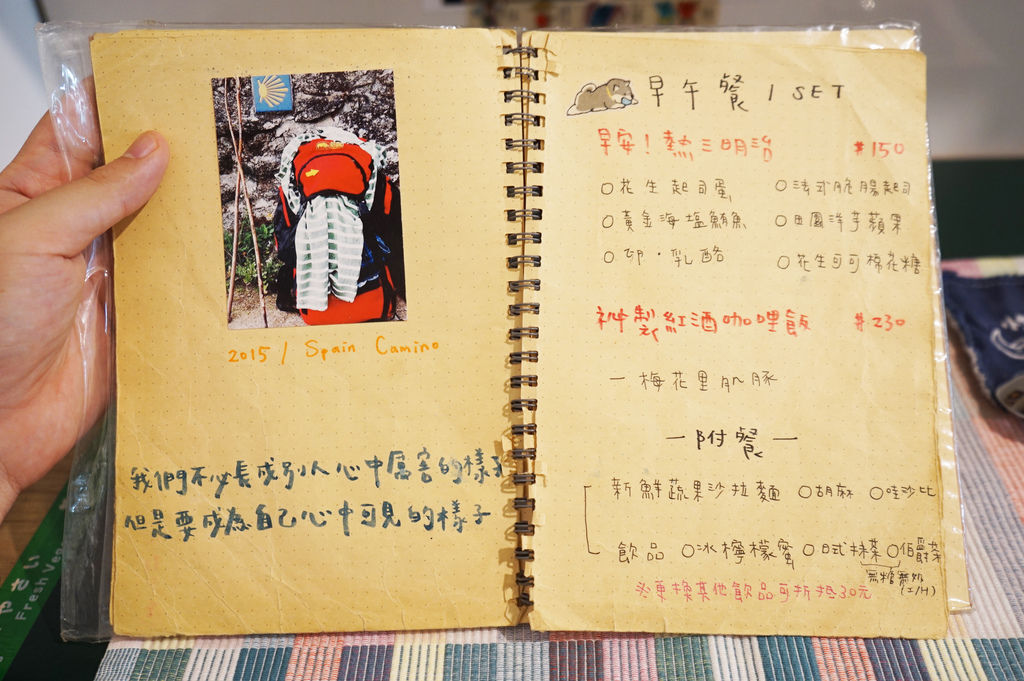 2015 / Spain Camino
我們不必長成別人心中厲害的樣子
但是要成為自己心中可見的樣子
早午餐 / SET
早安!熱三明治 #150
○花生起司蛋 ○法式脆腸起司
○黃金海塩鮪魚 ○田園洋芋蘋果
○卯·乳酪 ○花生可可棉花糖
神製紅酒咖哩飯 #230
一梅花里肌豚
一附餐一
新鮮蔬果沙拉麵 ○胡麻 ○哇沙比
飲品 ○冰檸檬蜜 ○日式抹茶 ○伯爵茶
無糖無奶
(I/H)
※更換其他飲品可折抵30元
やさい
Fresh Ve